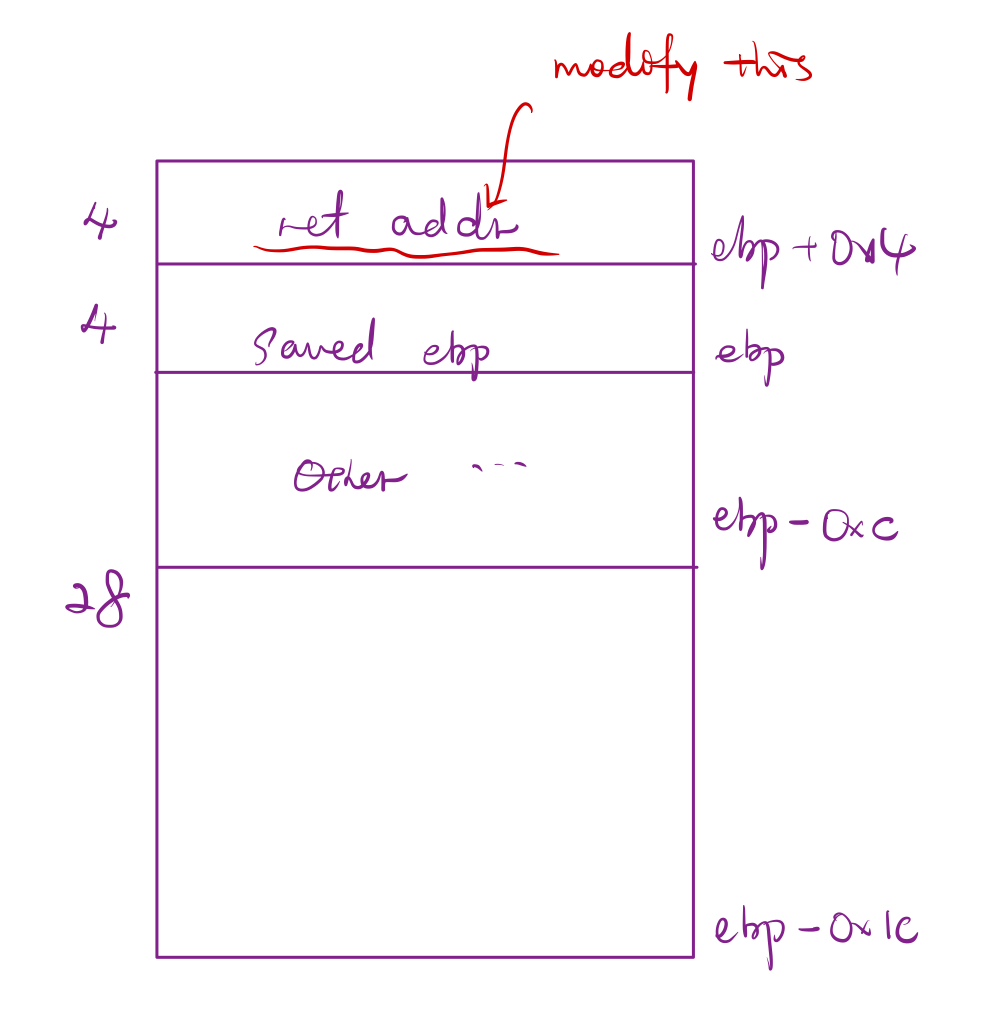 modify this
4 ret addr ebp + 0x4
4 saved ebp ebp
Other ...
ebp - 0xc
28
ebp - 0x1c